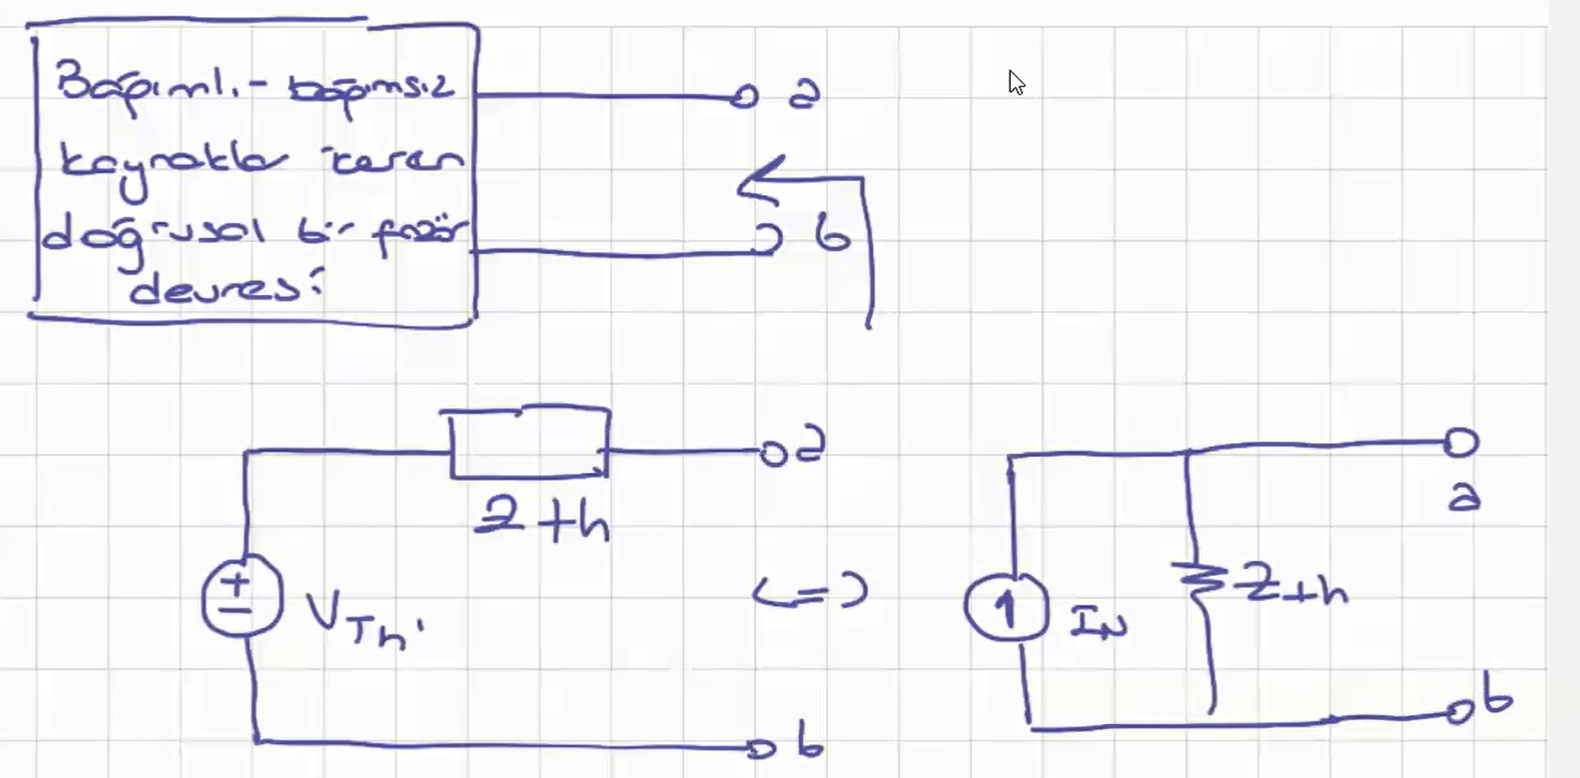 Bağımlı - bağımsız
kaynaklar içeren
doğrusal bir fazör
devresi
a
b
a
Zth
VTh
<=>
b
a
IN
Zth
b